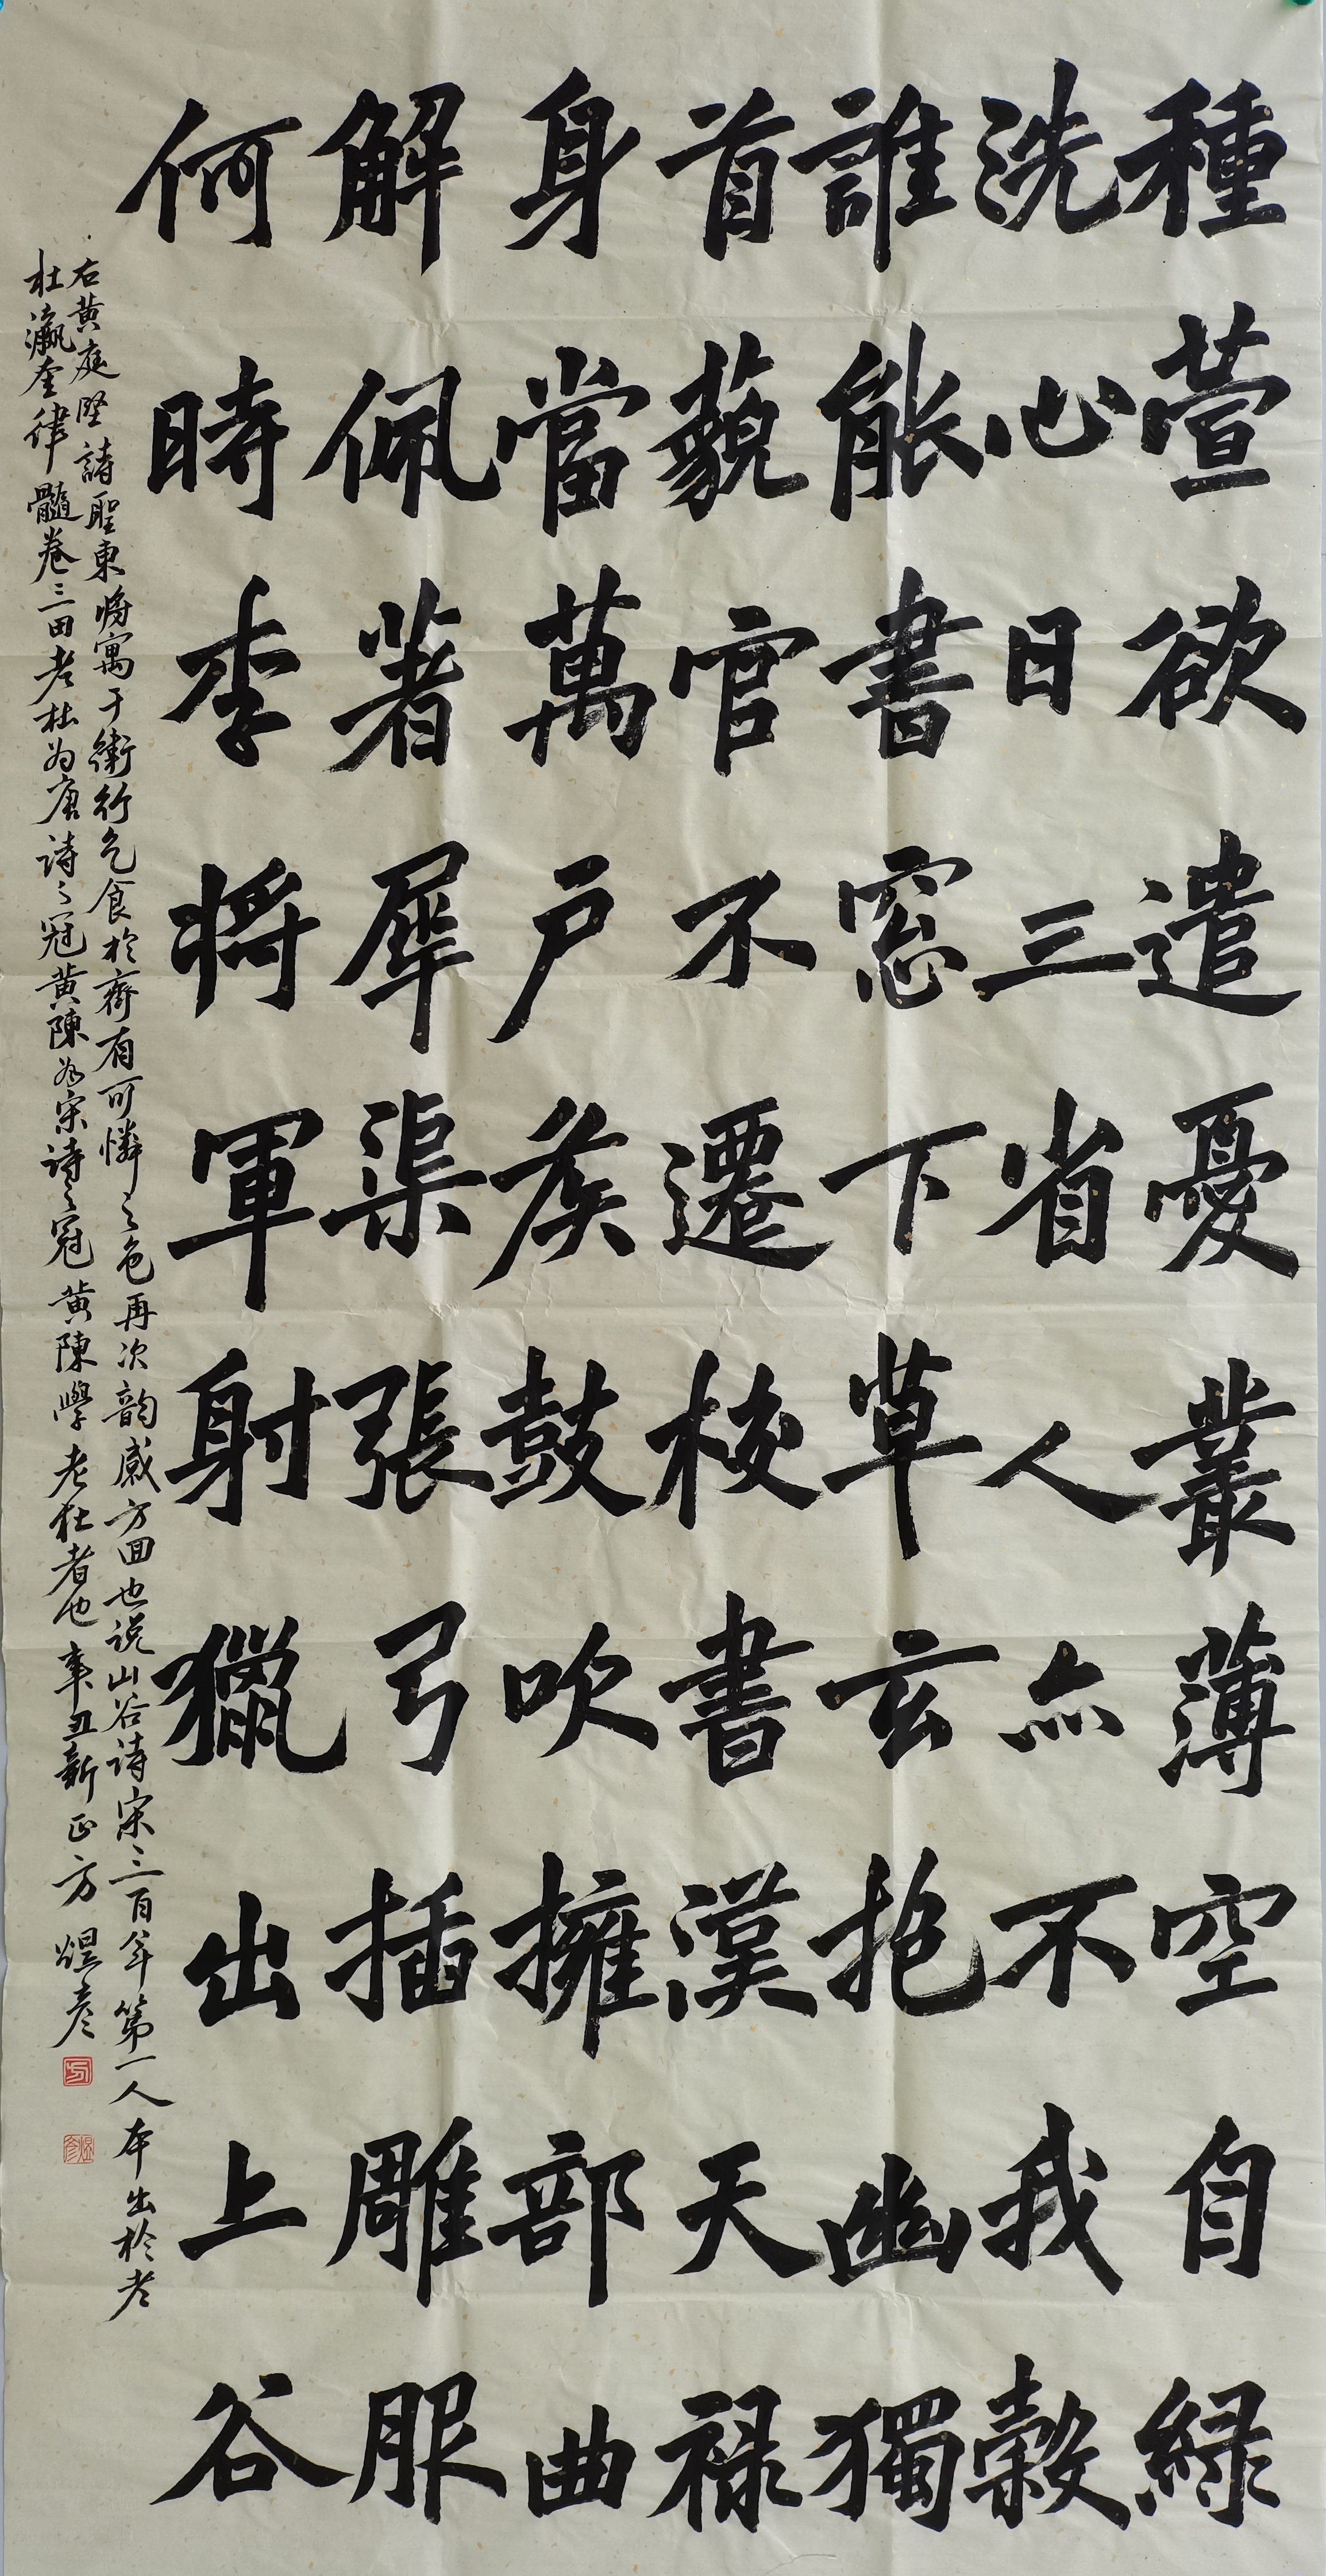 種萱欲遣憂叢薄空自綠
洗心日三省人亦不我穀
誰能書窓下草玄抱幽獨
首藐官不遷校書漢天祿
身當萬戶侯鼓吹擁部曲
解佩著犀渠張弓插雕服
何時李將軍射獵出上谷
右黃庭堅詩聖東將寓于衛行乞食於齊有可憐之色再次韵感方回也说山谷诗宋三百年第一人本出於老
杜瀛奎律髓卷三曰老杜为唐诗之冠黄陳为宋诗之冠黄陳學老杜者也辛丑新正方煜彥